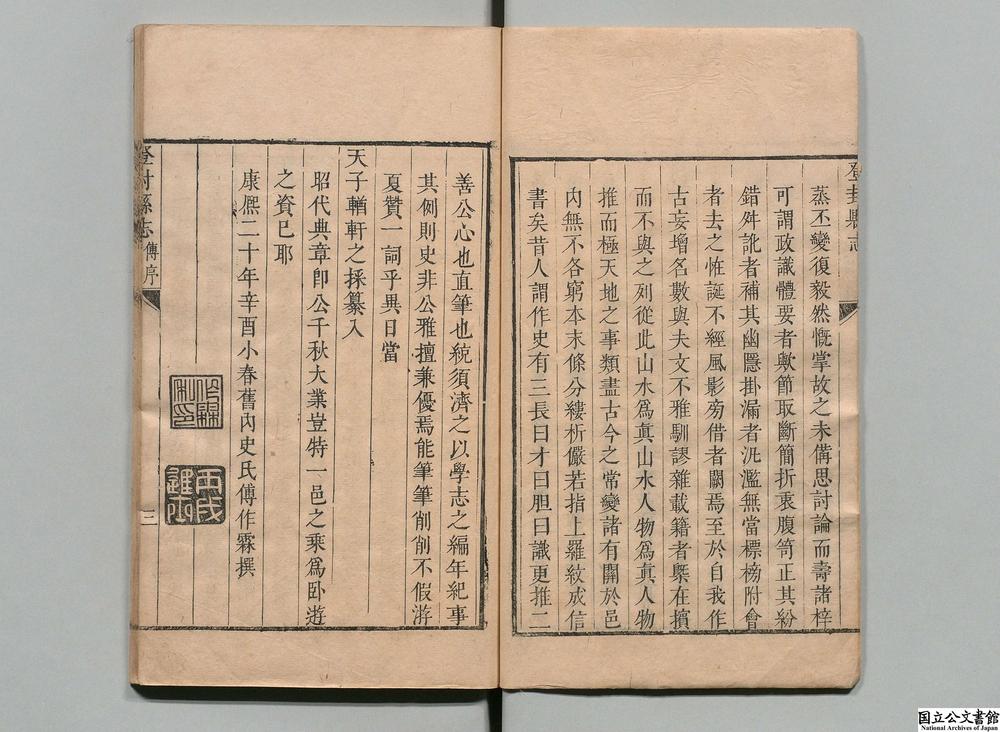 登封縣志
蒸丕變復毅然慨掌故之未備思討論而壽諸梓
可謂政識體要者歟節取斷簡折衷腹笥正其紛
錯舛訛者補其幽隱掛漏者汎濫無當標榜附會
者去之恠誕不經風影旁借者闕焉至於自我作
古妄增名數與夫文不雅馴謬雜載籍者槩在擯
而不與之列從此山水爲真山水人物爲真人物
推而極天地之事類盡古今之常變諸有關於邑
内無不各窮本末條分縷析儼若指上羅紋成信
書矣昔人謂作史有三長曰才曰胆曰識更推二
善公心也直筆也統須濟之以學志之編年紀事
其例則史非公雅擅兼優焉能筆筆削削不假游
夏贊一詞乎異日當
天子輶軒之採纂入
昭代典章卽公千秋大業豈特一邑之乘爲卧遊
之資已耶
康熙二十年辛酉小春舊内史氏傅作霖撰
登封縣志
傅序
三
国立公文書館
National Archives of Japan